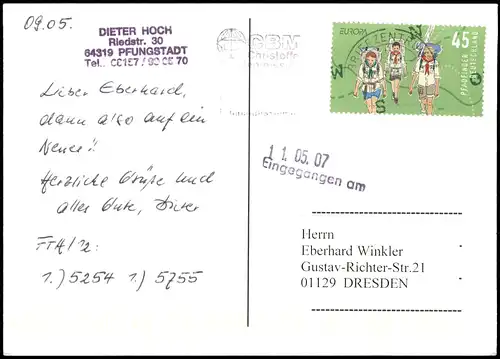 09.05.
DIETER HOCH
Riedstr. 30
64319 PFUNGSTADT
Lieber Eberhard,
dann also auf ein
Neues!!
Herzliche Grüße und
alles Gute, Dieter
1.) 5254 1.) 5755
CBM
Christoffel
BRIEFZENTRUM
EUROPA
45
PFADFINDER
DEUTSCHLAND
W
O
S
11.05.07
Eingegangen am
Herrn
Eberhard Winkler
Gustav-Richter-Str.21
01129 DRESDEN